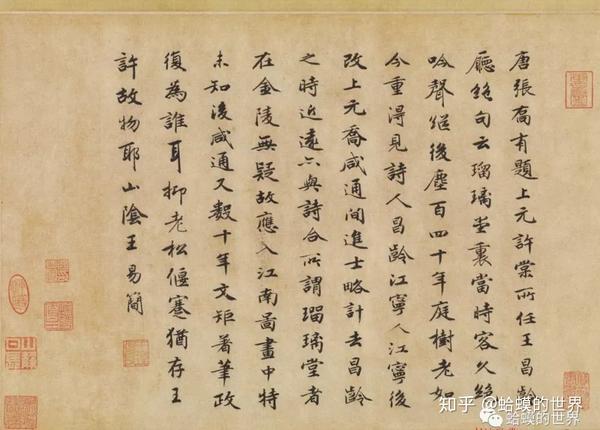 唐張喬有題上元許棠所任王昌齡
廳絕句云瑠璃堂裏當時客久絕
吟聲繼後塵百四十年庭樹老如
今重得見詩人昌齡江寧人江寧後
改上元喬咸通間進士略計去昌齡
之時近遠亦與詩合所謂瑠璃堂者
在金陵無疑故應入江南圖畫中特
未知後咸通又數十年文矩著筆政
復為誰耳抑老松偃蹇猶存王
許故物耶山陰王易簡
知乎 @蛤蟆的世界
蛤蟆的世界